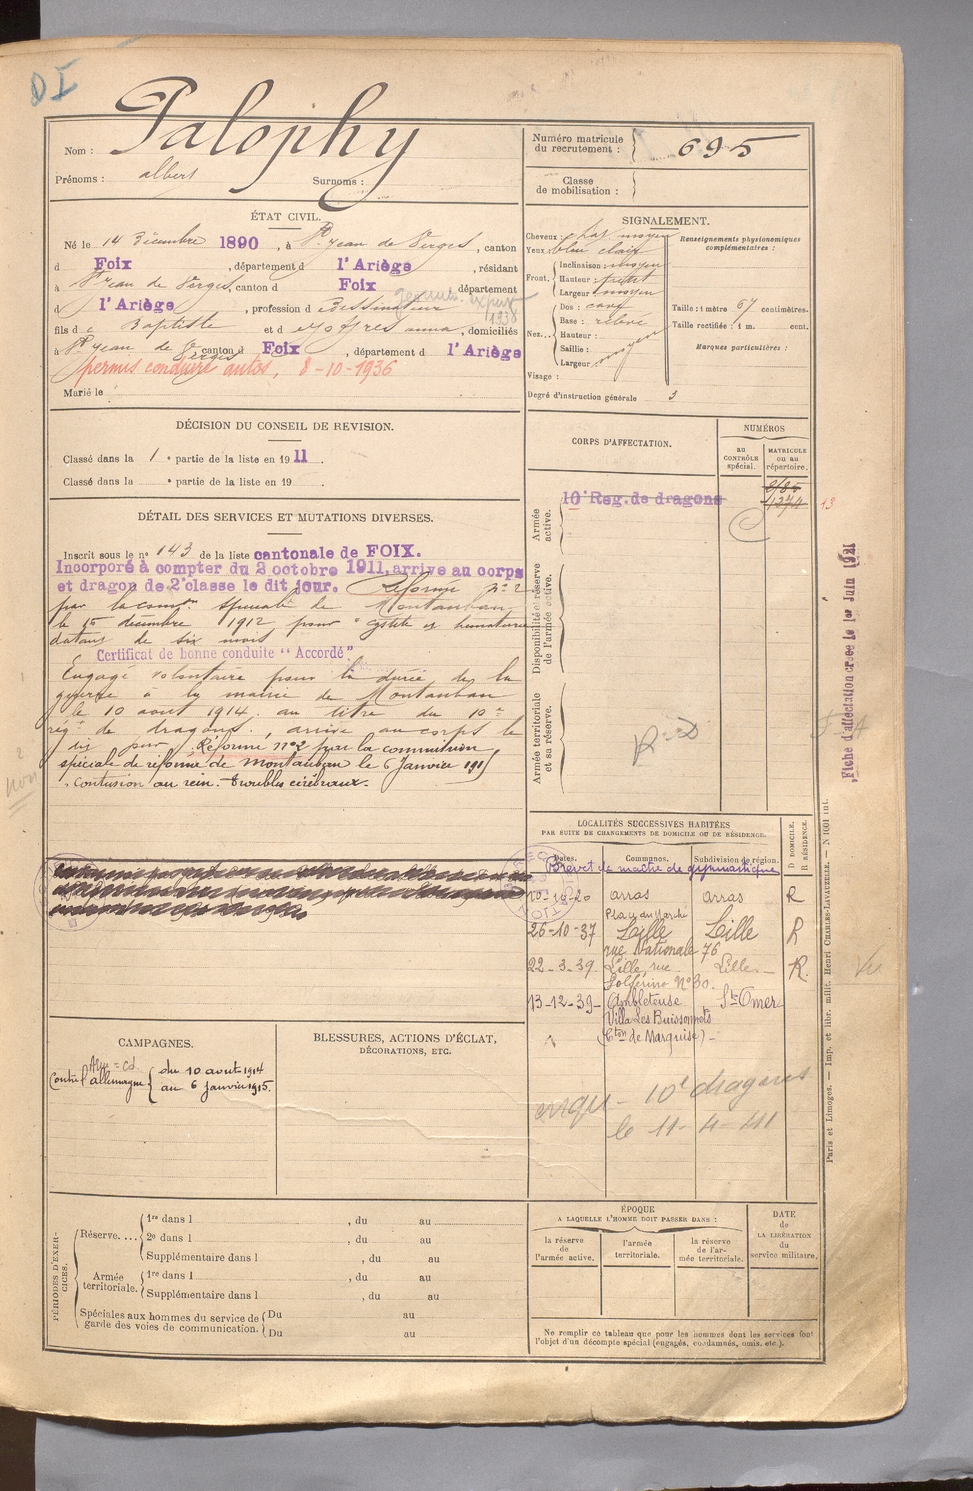 DI
Nom : Palophy
Prénoms : albert Surnoms :
Numéro matricule du recrutement : 695
Classe de mobilisation :
ÉTAT CIVIL.
Né le 14 Décembre 1890, à St Jean de Verges, canton
d Foix, département d l'Ariège, résidant
à St Jean de Verges, canton d Foix département
d l'Ariège, profession d Dessinateur
1938
fils de Baptiste et d anna, domiciliés
à St Jean de Verges canton d Foix, département d l'Ariège
permis conduire autos, 8-10-1936
Marié le
SIGNALEMENT.
Cheveux : chat moyen
Yeux : bleu clair
Front. Inclinaison : moyen
Hauteur : petit
Largeur : moyen
Nez. Dos : cave
Base : relevé
Hauteur :
Saillie : moyen
Largeur :
Visage :
Renseignements physionomiques complémentaires :
Taille : 1 mètre 67 centimètres.
Taille rectifiée : 1 m. cent.
Marques particulières :
Degré d'instruction générale 3
DÉCISION DU CONSEIL DE REVISION.
Classé dans la 1e partie de la liste en 1911.
Classé dans la e partie de la liste en 19
DÉTAIL DES SERVICES ET MUTATIONS DIVERSES.
Inscrit sous le no 143 de la liste cantonale de FOIX.
Incorporé à compter du 2 octobre 1911, arrive au corps
et dragon de 2e classe le dit jour. Réformé no 2
par la comon spéciale de Montauban
le 15 décembre 1912 pour "cystite et hématurie
datant de six mois
Certificat de bonne conduite "Accordé"
Engagé volontaire pour la durée de la
guerre à la mairie de Montauban
le 10 aout 1914. au titre du 10e
régt de dragons, arrivé au corps le
dit jour. Réformé no 2 par la commission
spéciale de réforme de Montauban le 6 Janvier 1915
"contusion au rein. troubles cérébraux.
CORPS D'AFFECTATION.
NUMÉROS
au CONTRÔLE spécial.
MATRICULE ou au répertoire.
Armée active.
10e Reg. de dragons
1374
13
Disponibilité et réserve de l'armée active.
Armée territoriale et sa réserve.
Fiche d'affectation créée le 1er Juin 1921
LOCALITÉS SUCCESSIVES HABITÉES
PAR SUITE DE CHANGEMENTS DE DOMICILE OU DE RÉSIDENCE.
Dates. Communes. Subdivision de région. D DOMICILE. R RÉSIDENCE.
Brevet de maître de gymnastique
arras arras R
Place du Marché
26-10-37 Lille Lille R
rue Nationale 76
22-3-39 Lille, rue Lille R.
Solférino No 30.
13-12-39 Ambleteuse St Omer
Villa Les Buissonnets
(Cton de Marquise)
10e dragons
le 11-4-41
Vu
CAMPAGNES.
Contre l'allemagne du 10 aout 1914
au 6 janvier 1915.
BLESSURES, ACTIONS D'ÉCLAT,
DÉCORATIONS, ETC.
PÉRIODES D'EXERCICES.
Réserve.... 1re dans l , du au
2e dans l , du au
Supplémentaire dans l , du au
Armée territoriale. 1re dans l , du au
Supplémentaire dans l , du au
Spéciales aux hommes du service de garde des voies de communication. Du au
Du au
ÉPOQUE
A LAQUELLE L'HOMME DOIT PASSER DANS :
la réserve de l'armée active.
l'armée territoriale.
la réserve de l'armée territoriale.
DATE de LA LIBÉRATION du service militaire.
Ne remplir ce tableau que pour les hommes dont les services font
l'objet d'un décompte spécial (engagés, condamnés, omis, etc.).
Paris et Limoges. — Imp. et libr. milit. Henri CHARLES-LAVAUZELLE. — N° 1001 int.